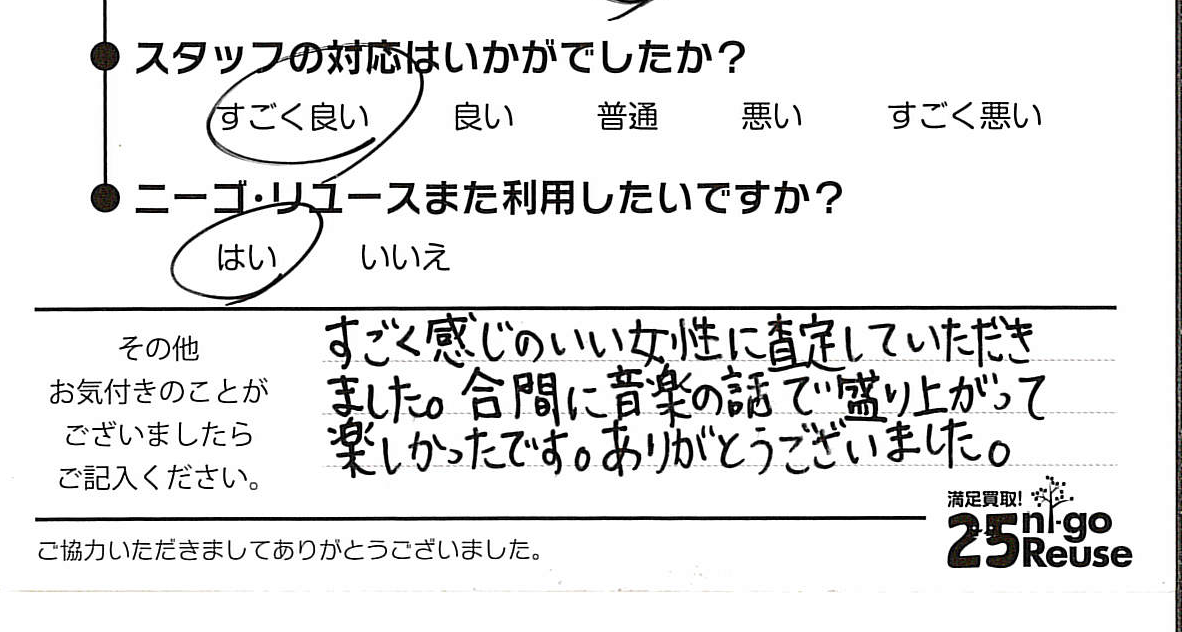 スタッフの対応はいかがでしたか？
すごく良い 良い 普通 悪い すごく悪い
ニーゴ・リユースまた利用したいですか？
はい いいえ
その他
お気付きのことが
ございましたら
ご記入ください。
すごく感じのいい女性に査定していただき
ました。合間に音楽の話で盛り上がって
楽しかったです。ありがとうございました。
満足買取!
25 ni-go
Reuse
ご協力いただきましてありがとうございました。